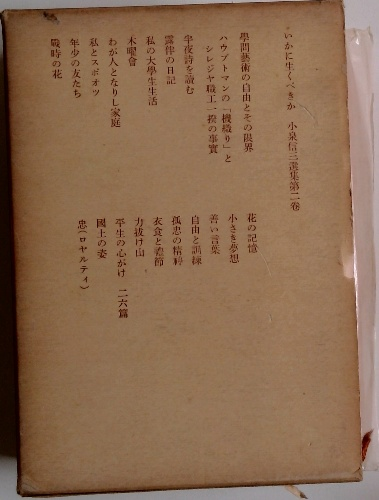 いかに生くべきか　小泉信三選集第二卷
學問藝術の自由とその限界
ハウプトマンの「機織り」と
シレジヤ職工一揆の事實
半夜詩を讀む
露伴の日記
私の大學生生活
木曜會
わが人となりし家庭
私とスポオツ
年少の友たち
戰時の花
花の記憶
小さき夢想
善い言葉
自由と訓練
孤忠の精神
衣食と禮節
力拔け山
平生の心がけ　二六篇
國土の姿
忠(ロヤルティ)